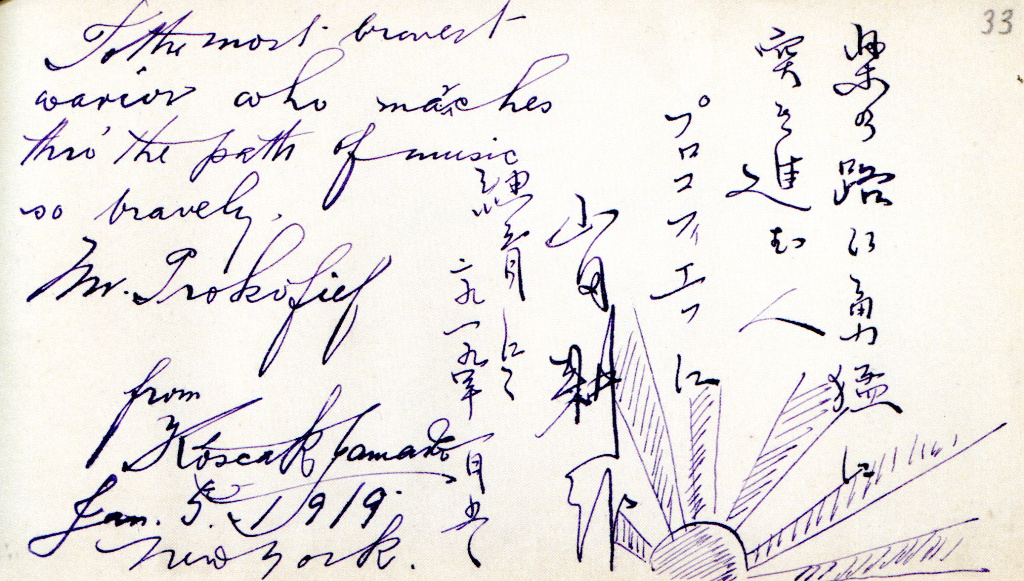 To the most bravest
warior who marches
thro' the path of music
so bravely.
Mr. Prokofief
from
Kósçak Yamada
Jan. 5. 1919.
New York.
33
楽の路に勇猛に
突き進む人
プロコフィエフに
山田耕作
紐育にて
一九一九年一月五日